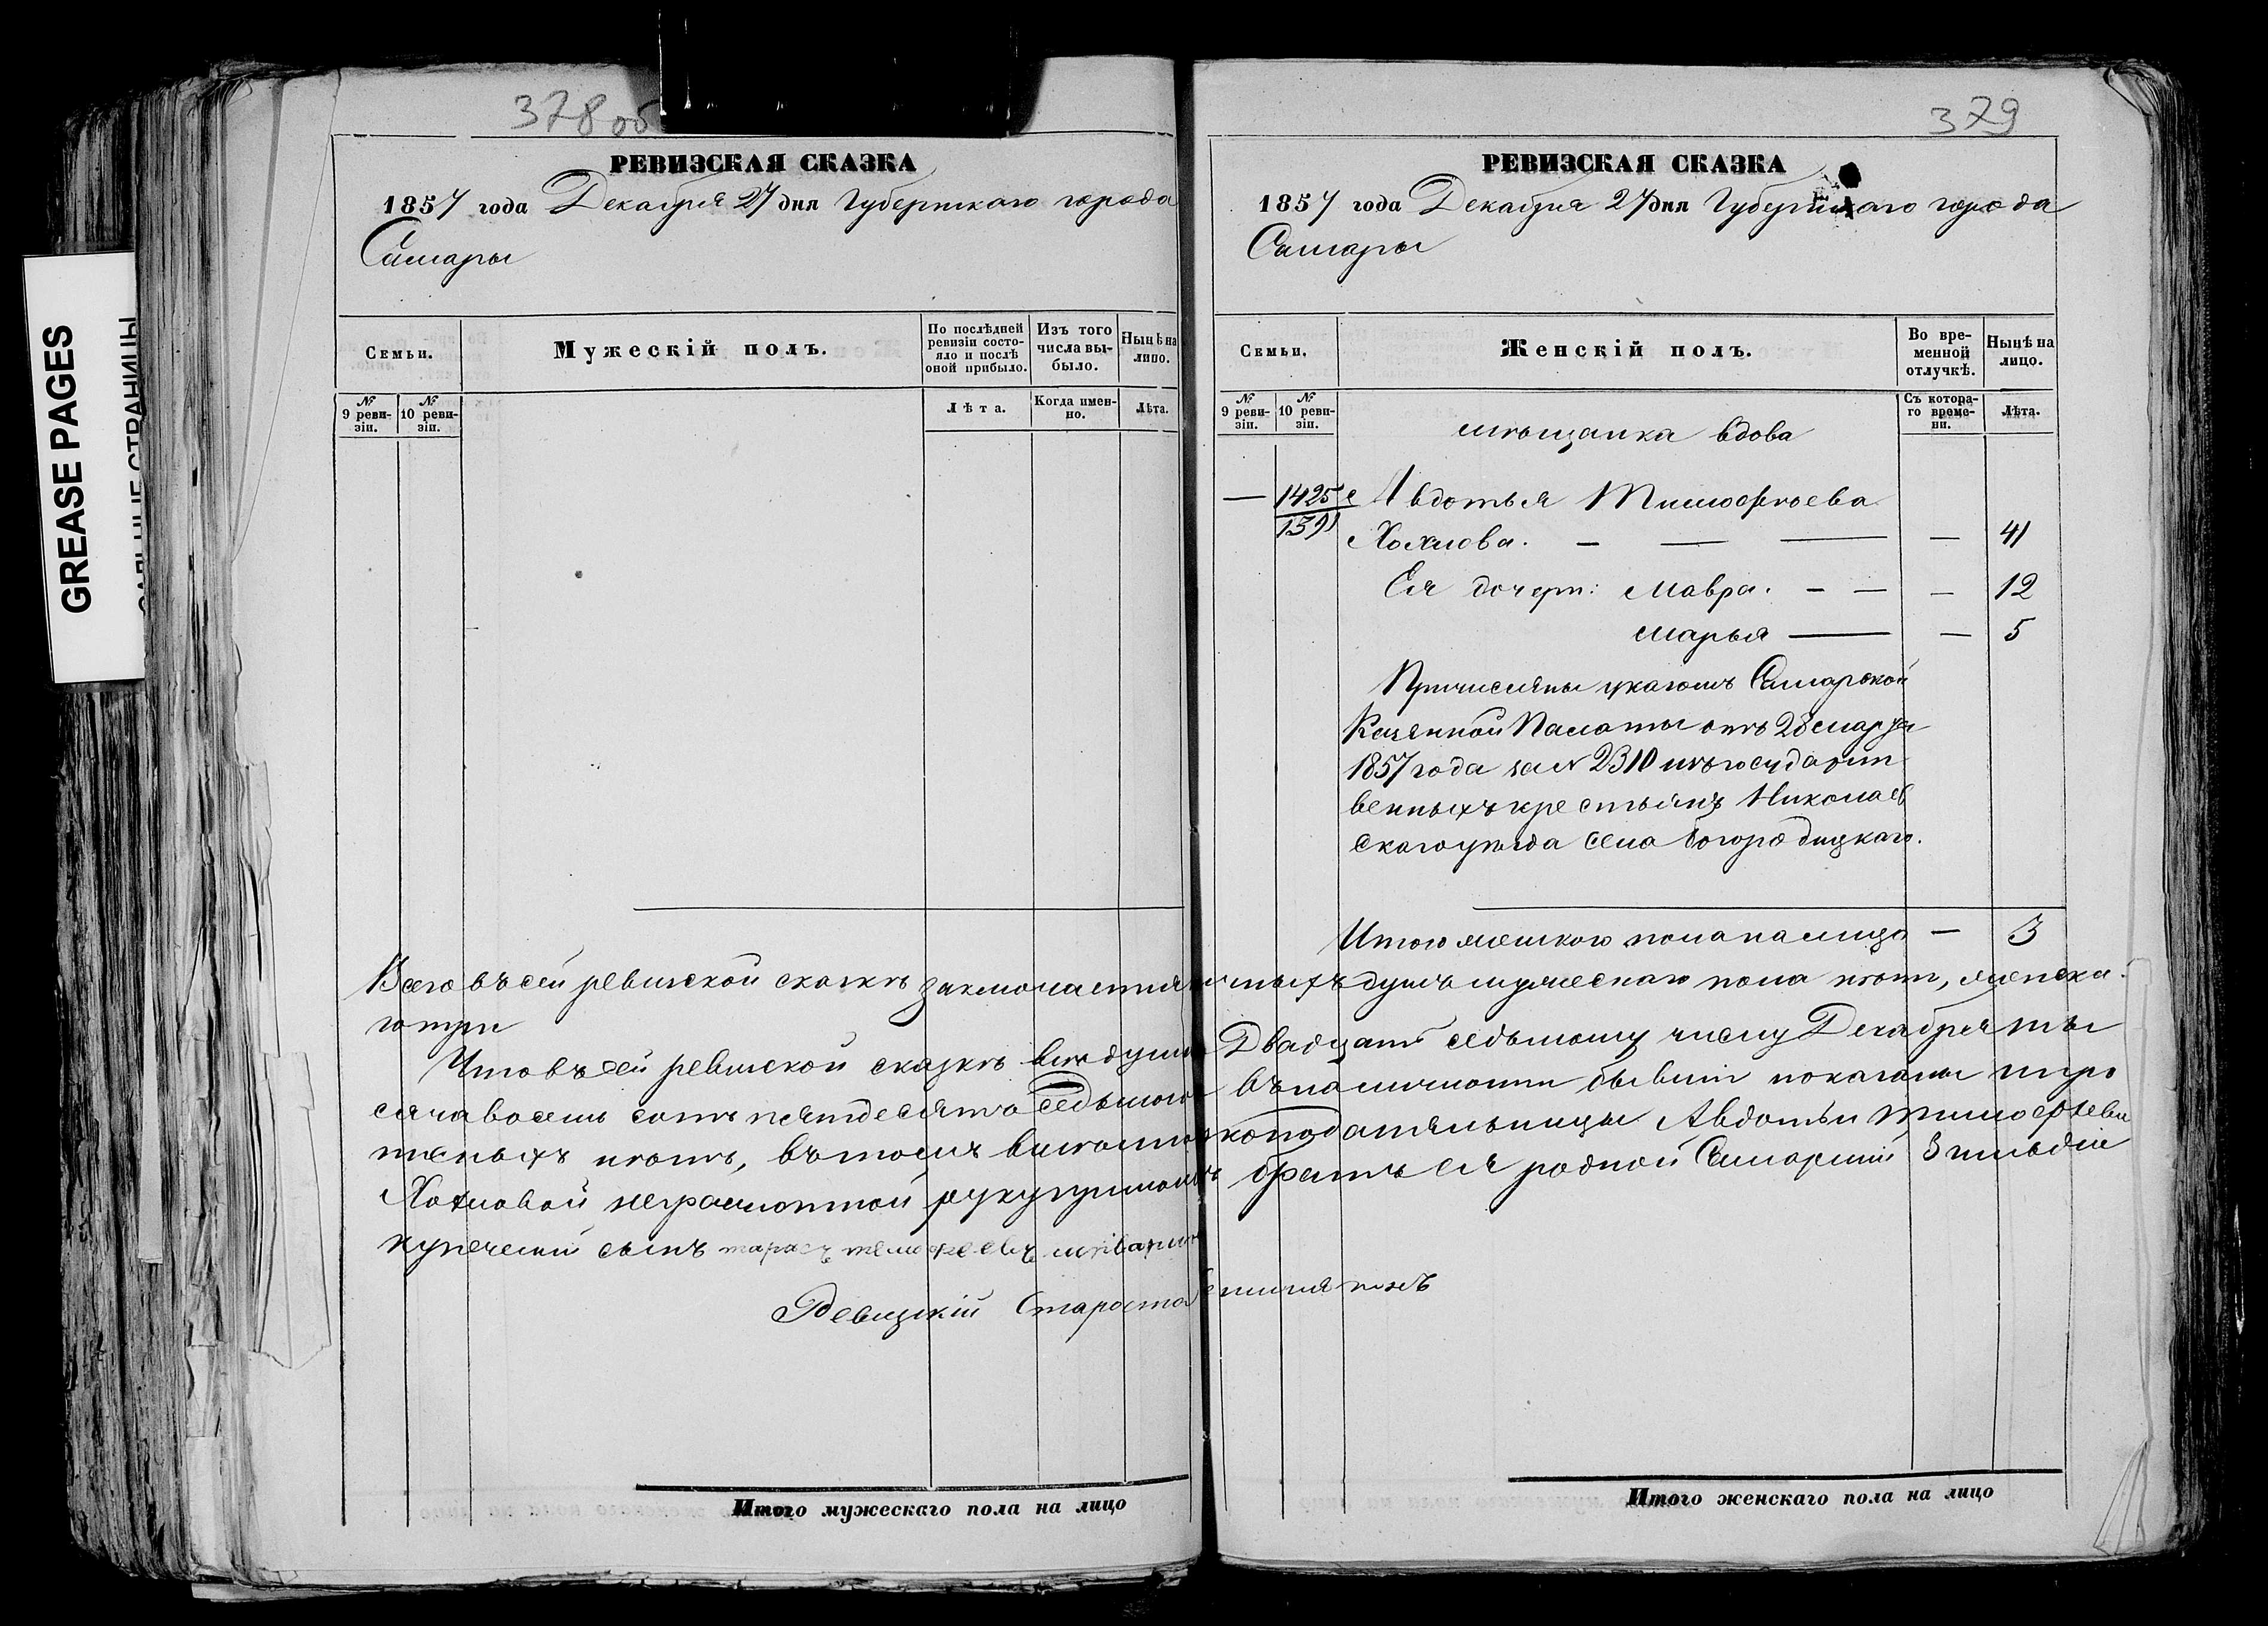 378 об
РЕВИЗСКАЯ СКАЗКА
1857 года Декабря 27 дня Губернскаго города
Самары
Семьи.
Мужескій полъ.
По послѣдней ревизіи состояло и послѣ оной прибыло.
Изъ того числа выбыло.
Нынѣ на лицо.
№ 9 ревизіи.
№ 10 ревизіи.
Лѣта.
Когда именно.
Лѣта.
379
РЕВИЗСКАЯ СКАЗКА
1857 года Декабря 27 дня Губернскаго города
Самары
Семьи.
Женскій полъ.
Во временной отлучкѣ.
Нынѣ на лицо.
№ 9 ревизіи.
№ 10 ревизіи.
Съ котораго времени.
Лѣта.
мѣщанка вдова
— 1425 Авдотья Тимофѣева
1391 Хохлова. — — — — 41
Ея дочери: Мавра. — — — 12
Марья — — 5
Причислены указомъ Самарской
Казенной Палаты отъ 28 марта
1857 года за № 2310 изъ государст
венныхъ крестьянъ Николаев
скаго уѣзда села Богородицкаго.
Итого женскаго пола на лицо — 3
Всего въ сей ревизской сказкѣ заключается душъ мужескаго пола нѣтъ, женска
го три
Что въ сей ревизской сказкѣ всѣ души Двадцать седьмому числу Декабря ты
сяча восемь сотъ пятдесятъ седьмого въ наличности бывшіе показаны и про
пущеныхъ нѣтъ, въ томъ вмѣсто Авдотьи Тимофѣевы
Хохловой неграмотной руку приложилъ братъ ея родной Самарскій 3 гильдіи
купеческій сынъ тарасъ темофеевъ
Ревизскій Староста
Итого мужескаго пола на лицо
Итого женскаго пола на лицо
GREASE PAGES